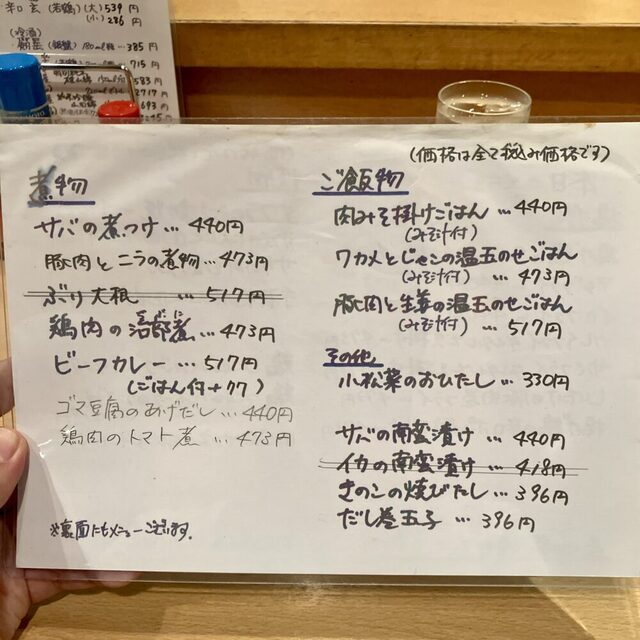 (若鶴)(大)539円
(小)286円
(冷酒)
180ml瓶…385円
…715円
(価格は全て税込み価格です)
煮物
サバの煮つけ…440円
豚肉とニラの煮物…473円
ぶり大根 …517円
鶏肉の治部煮…473円
ビーフカレー …517円
(ごはん付+77)
ゴマ豆腐のあげだし…440円
鶏肉のトマト煮 …473円
※裏面にもメニューございます。
ご飯物
肉みそ掛けごはん …440円
(みそ汁付)
ワカメとじゃこの温玉のせごはん
(みそ汁付) …473円
豚肉と生姜の温玉のせごはん
(みそ汁付) …517円
その他
小松菜のおひたし…330円
サバの南蛮漬け …440円
イカの南蛮漬け …418円
きのこの焼びたし…396円
だし巻玉子 …396円